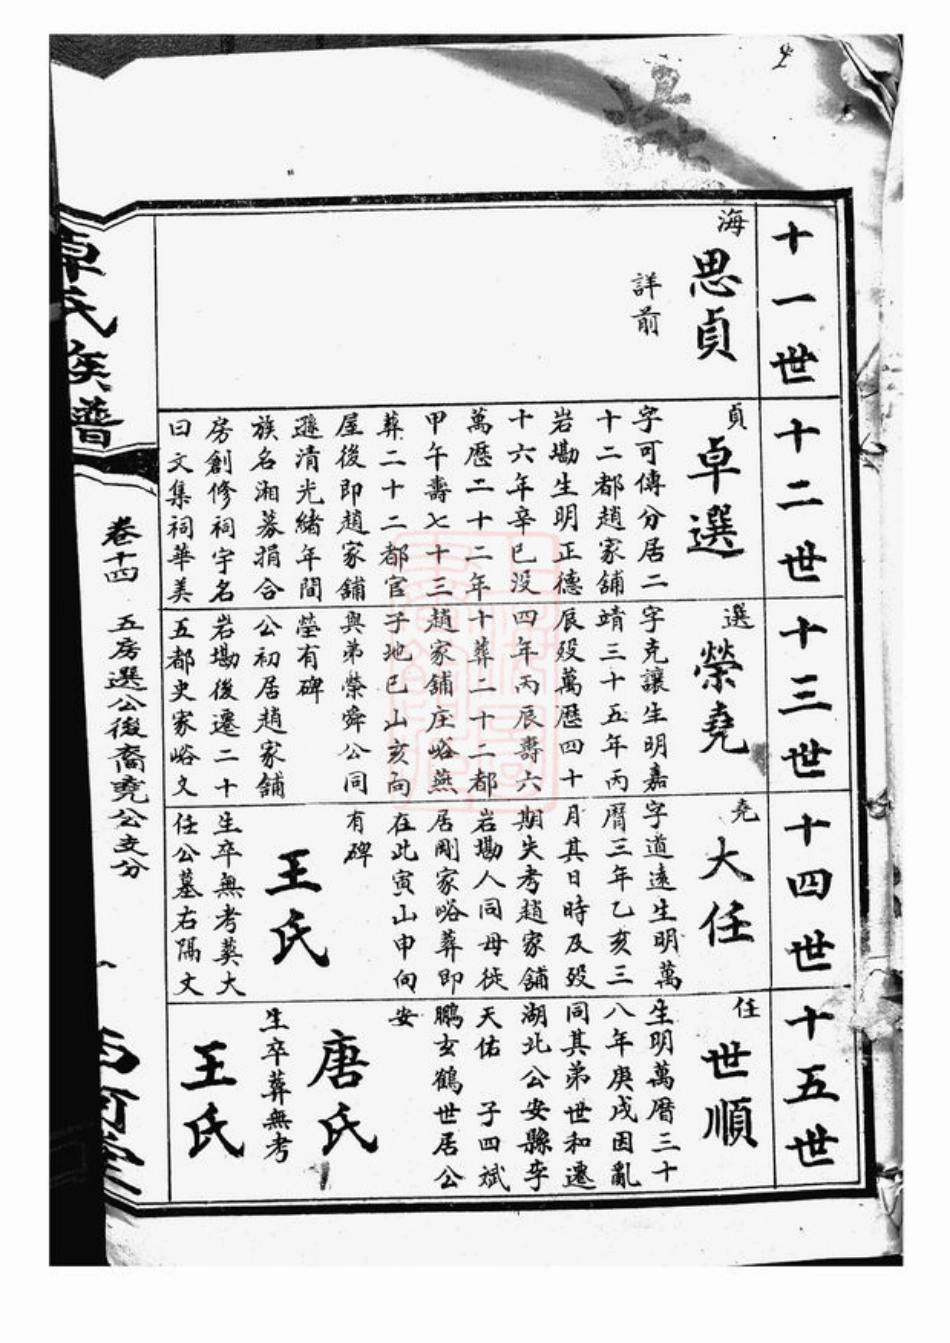 十一世
海
思貞
詳前
十二世
貞
卓選
字可傳分居二
十二都趙家舖
岩塲生明正德
十六年辛巳没
萬歷二十二年
甲午壽七十三
葬二十二都官
屋後即趙家舖
遜清光緒年間
族名湘募捐合
房創修祠宇名
曰文集祠華美
十三世
選
榮堯
字克讓生明嘉
靖三十五年丙
辰殁萬歷四十
四年丙辰壽六
十葬二十二都
趙家舖庄峪燕
子地巳山亥向
與弟榮舜公同
塋有碑
公初居趙家舖
岩塲後遷二十
五都史家峪文
十四世
堯
大任
字道遠生明萬
曆三年乙亥三
月其日時及殁
期失考趙家舖
岩塲人同母徙
居剛家峪葬即
在此寅山申向
有碑
王氏
生卒無考葬大
任公墓右隔丈
十五世
任
世順
生明萬曆三十
八年庚戌因亂
同其弟世和遷
湖北公安縣李
天佑 子四斌
鵬玄鶴世居公
安
唐氏
生卒葬無考
王氏
卓氏族譜
卷十四 五房選公後裔堯公支分
西河堂